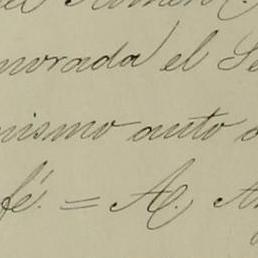 morada el Se
mismo auto a
fé. = A. A